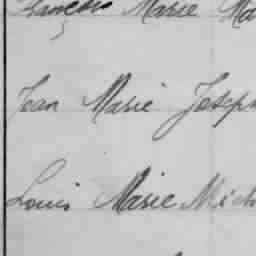 François Marie Ma
Jean Marie Joseph
Louis Marie Mich